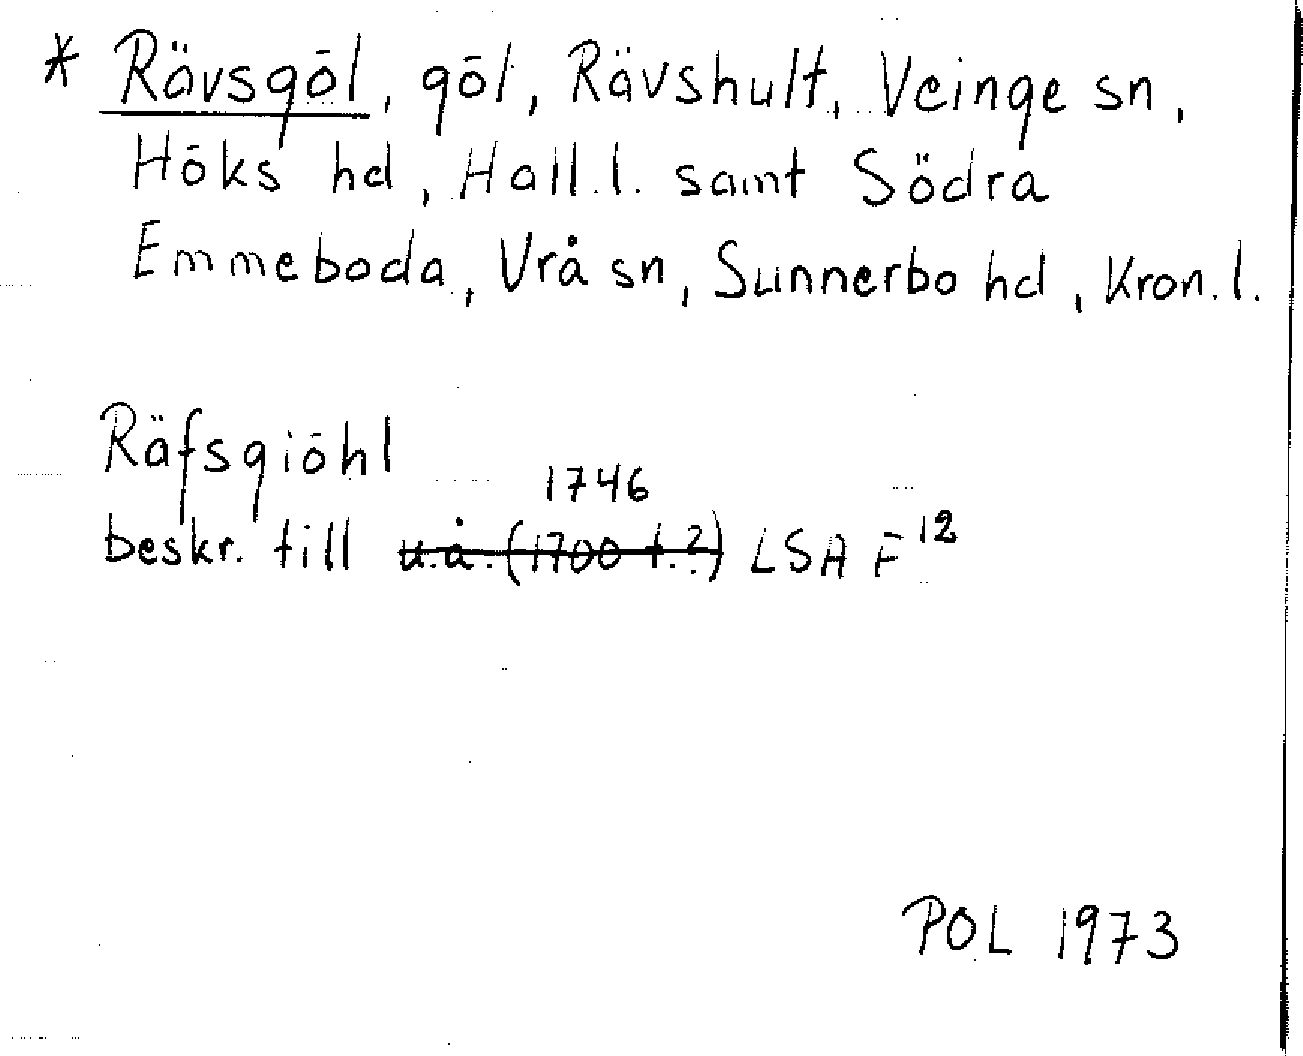 * Rävsgöl, göl, Rävshult, Veinge sn,
Höks hd, Hall.l. samt Södra
Emmeboda, Vrå sn, Sunnerbo hd, Kron.l.
Räfsgiöhl
1746
beskr. till u.å. (1700 t.?) LSA F 12
POL 1973